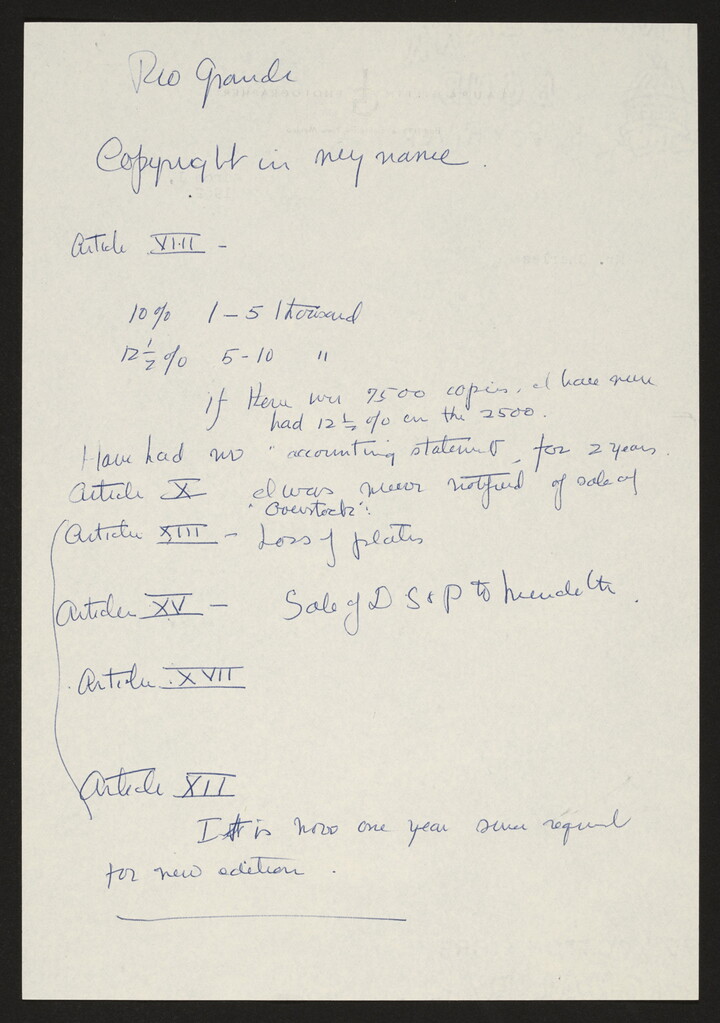 Rio Grande
Copyright in my name.
Article VIII -
10% 1 - 5 thousand
12 1/2 % 5 - 10 "
if there were 7500 copies, I have never
had 12 1/2 % on the 2500.
Have had no "accounting statement" for 2 years.
Article X I was never notified of sale of
"Overstock".
Article XIII - Loss of plates
Article XV - Sale of D S & P to Meredith.
Article XVII
Article XII
It is now one year since request
for new edition.